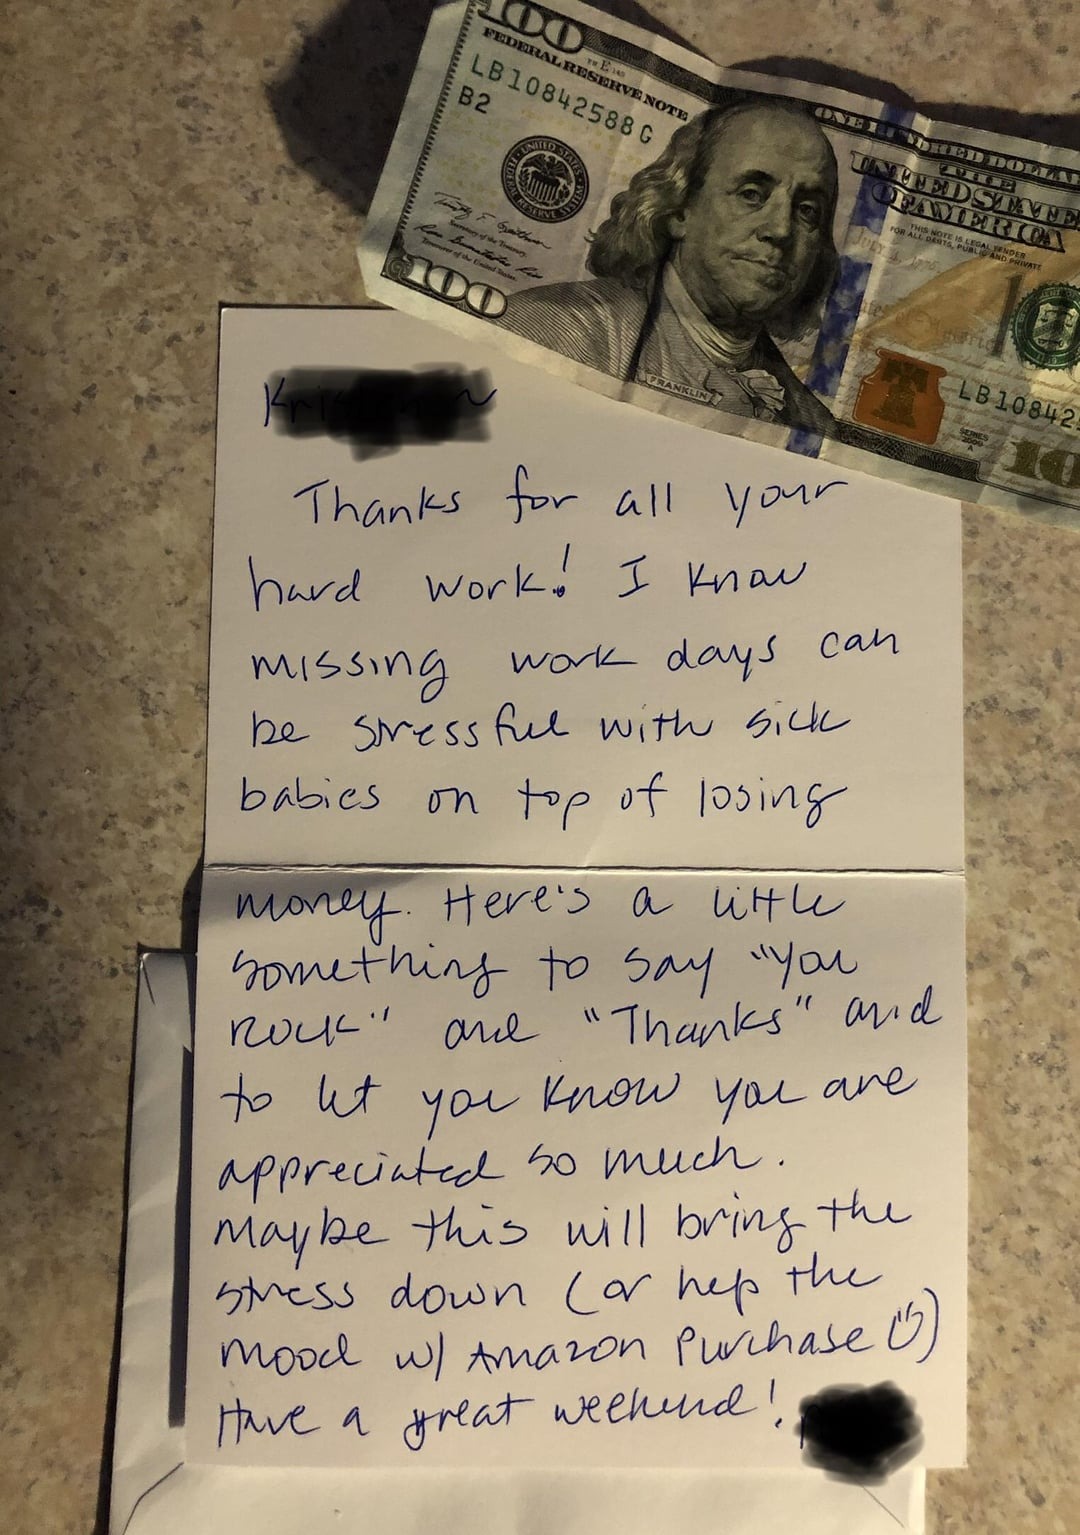 100
FEDERAL RESERVE NOTE
LB10842588G
B2
UNITED STATES
FEDERAL RESERVE SYSTEM
Secretary of the Treasury
Treasurer of the United States
100
FRANKLIN
ONE HUNDRED DOLLA
THE
UNITED STATE
OF AMERICA
THIS NOTE IS LEGAL TENDER
FOR ALL DEBTS, PUBLIC AND PRIVATE
LB10842
SERIES
2009
A
10
Thanks for all your
hard work! I know
missing work days can
be stressful with sick
babies on top of losing
money. Here's a little
something to say "you
rock" and "Thanks" and
to let you know you are
appreciated so much.
Maybe this will bring the
stress down (or hep the
mood w/ Amazon Purchase
Have a great weekend!